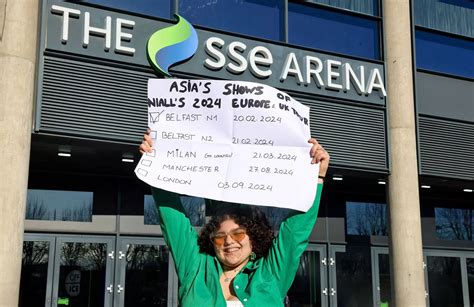 THE sse ARENA
ASIA'S SHOWS OF
NIALL'S 2024 EUROPE & UK TOUR
BELFAST N1 20.02.2024
BELFAST N2 21.02.2024
MILAN 21.03.2024
MANCHESTER 27.08.2024
LONDON 03.09.2024